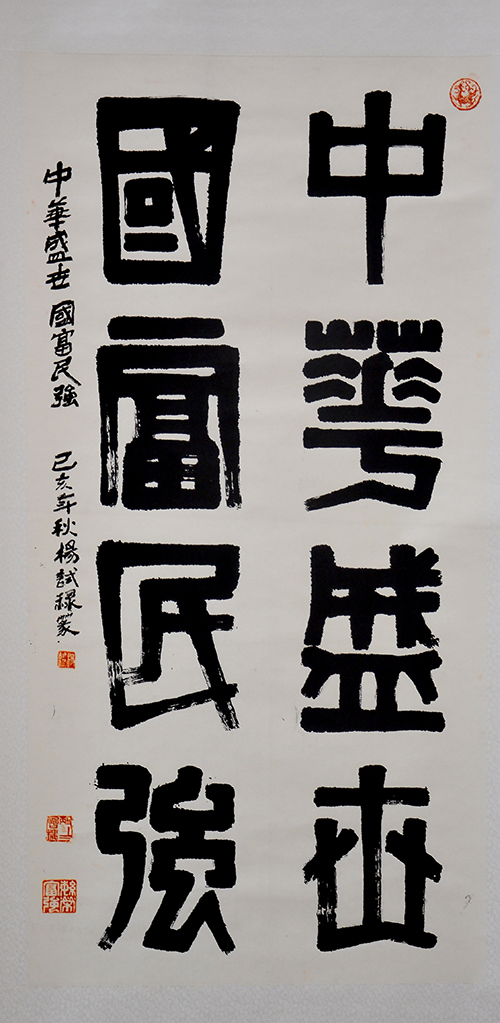 中華盛世
國富民強
中華盛世 國富民強 己亥年秋楊試祿篆
繁榮富強